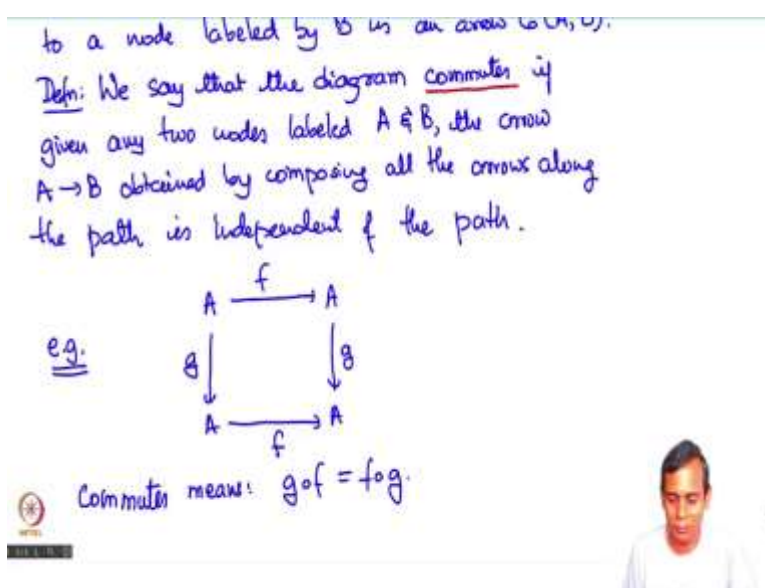 to a node labeled by B is an arrow
Defn: We say that the diagram commutes if
given any two nodes labeled A & B, the arrow
A → B obtained by composing all the arrows along
the path is independent of the path.
f
A → A
e.g.
g g
A → A
f
Commutes means: g∘f = f∘g.